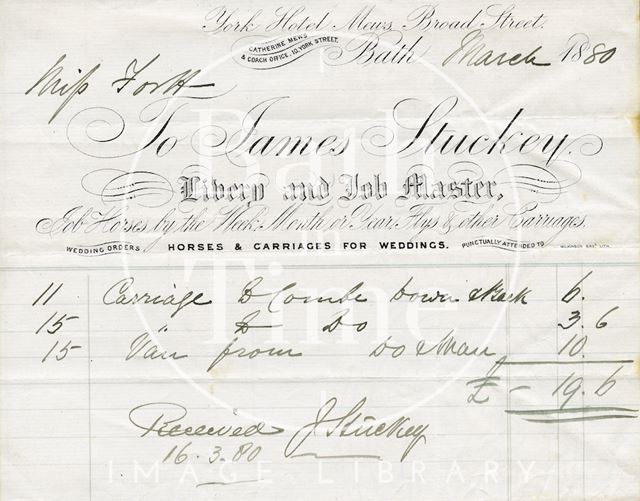 York Hotel Mews, Broad Street.
CATHERINE MEWS
& COACH OFFICE, 10, YORK STREET.
Bath March 1880
Miss Fortt
To James Stuckey,
Livery and Job Master,
Job Horses by the Week, Month or Year, Flys & other Carriages.
WEDDING ORDERS HORSES & CARRIAGES FOR WEDDINGS. PUNCTUALLY ATTENDED TO
11 Carriage to Combe Down & Back 6.
15 " to Do 3.6
15 Van from Do & Man 10.
£ - 19.6
Received J Stuckey
16.3.80
Bath
in
Time
IMAGE LIBRARY